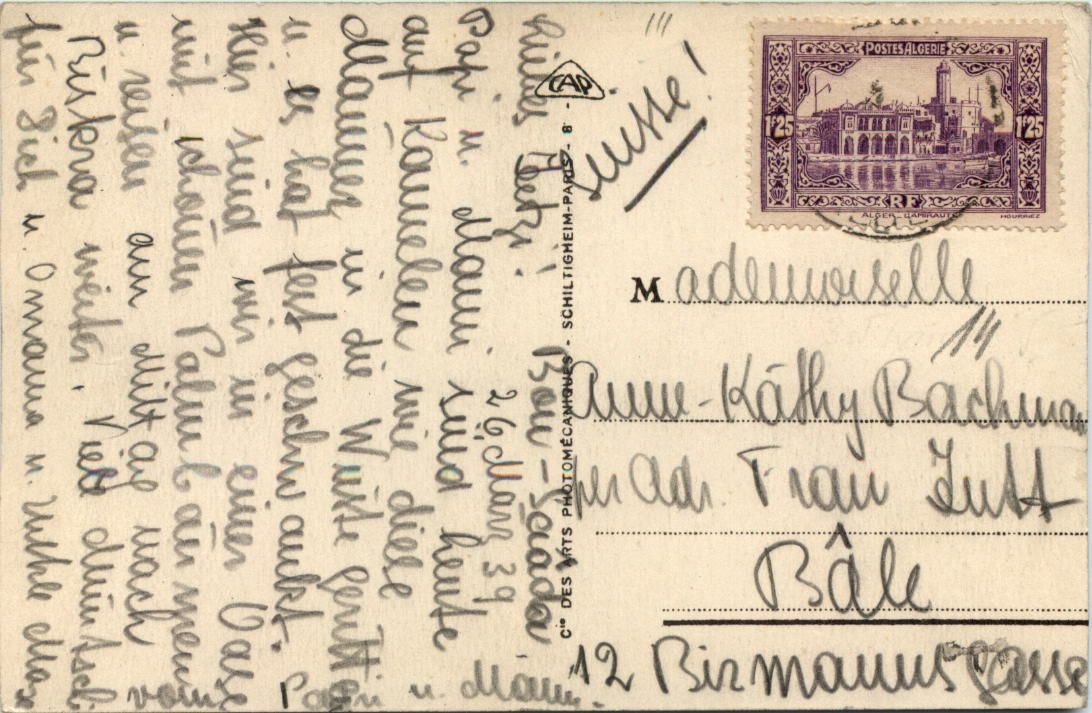 Bou-Saada
26. März 39
Liebes
Papi u. Mami sind heute
auf Kamelen wie diese
Männer in die Wüste geritten
u. es hat fest geschwankt.
Hier sind wir in einer Oase
mit schönen Palmbäumen
u. reisen am Mittag nach
Biskra weiter. Viele Müntschi
für Dich u. Omama u.
vom Papi u. Mami.
CAP
Cie DES ARTS PHOTOMÉCANIQUES - SCHILTIGHEIM-PARIS - 8 -
Suisse!
POSTES ALGERIE
1F25 1F25
RF
ALGER-L'AMIRAUTÉ HOURRIEZ
Mademoiselle
Anne-Käthy Bachmann
per Adr. Frau Zutt
Bâle
12 Birmannsgasse